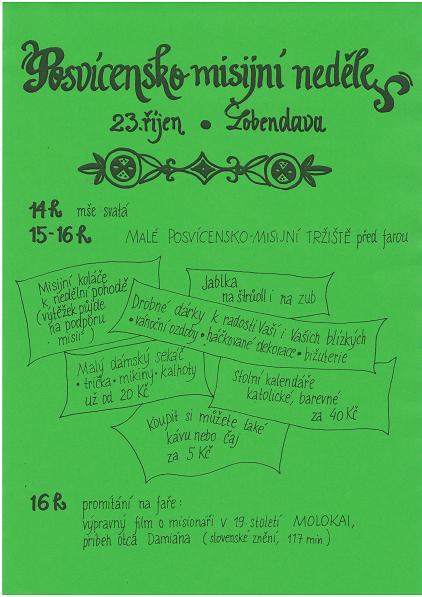 Posvícensko-misijní neděle
23. říjen • Lobendava
14 h mše svatá
15-16 h MALÉ POSVÍCENSKO-MISIJNÍ TRŽIŠTĚ před farou
Misijní koláče
k nedělní pohodě
(výtěžek půjde
na podporu
misií)
Jablka
na štrúdl i na zub
Drobné dárky k radosti Vaší i Vašich blízkých
• vánoční ozdoby • háčkované dekorace • bižuterie
Malý dámský sekáč
• trička • mikiny • kalhoty
už od 20 Kč
Stolní kalendáře
katolické, barevné
za 40 Kč
Koupit si můžete také
kávu nebo čaj
za 5 Kč
16 h promítání na faře:
výpravný film o misionáři v 19. století MOLOKAI,
příběh otca Damiána (slovenské znění, 117 min)